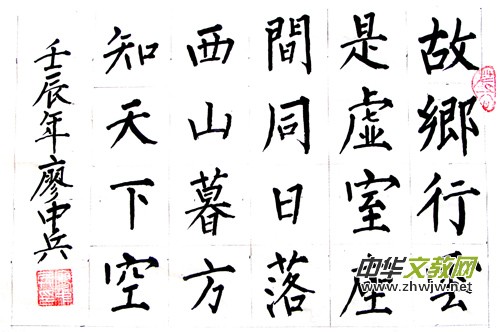 故鄉行雲
是虛室座
間同日落
西山暮方
知天下空
壬辰年廖中兵
中华文教网
www.zhwjw.net